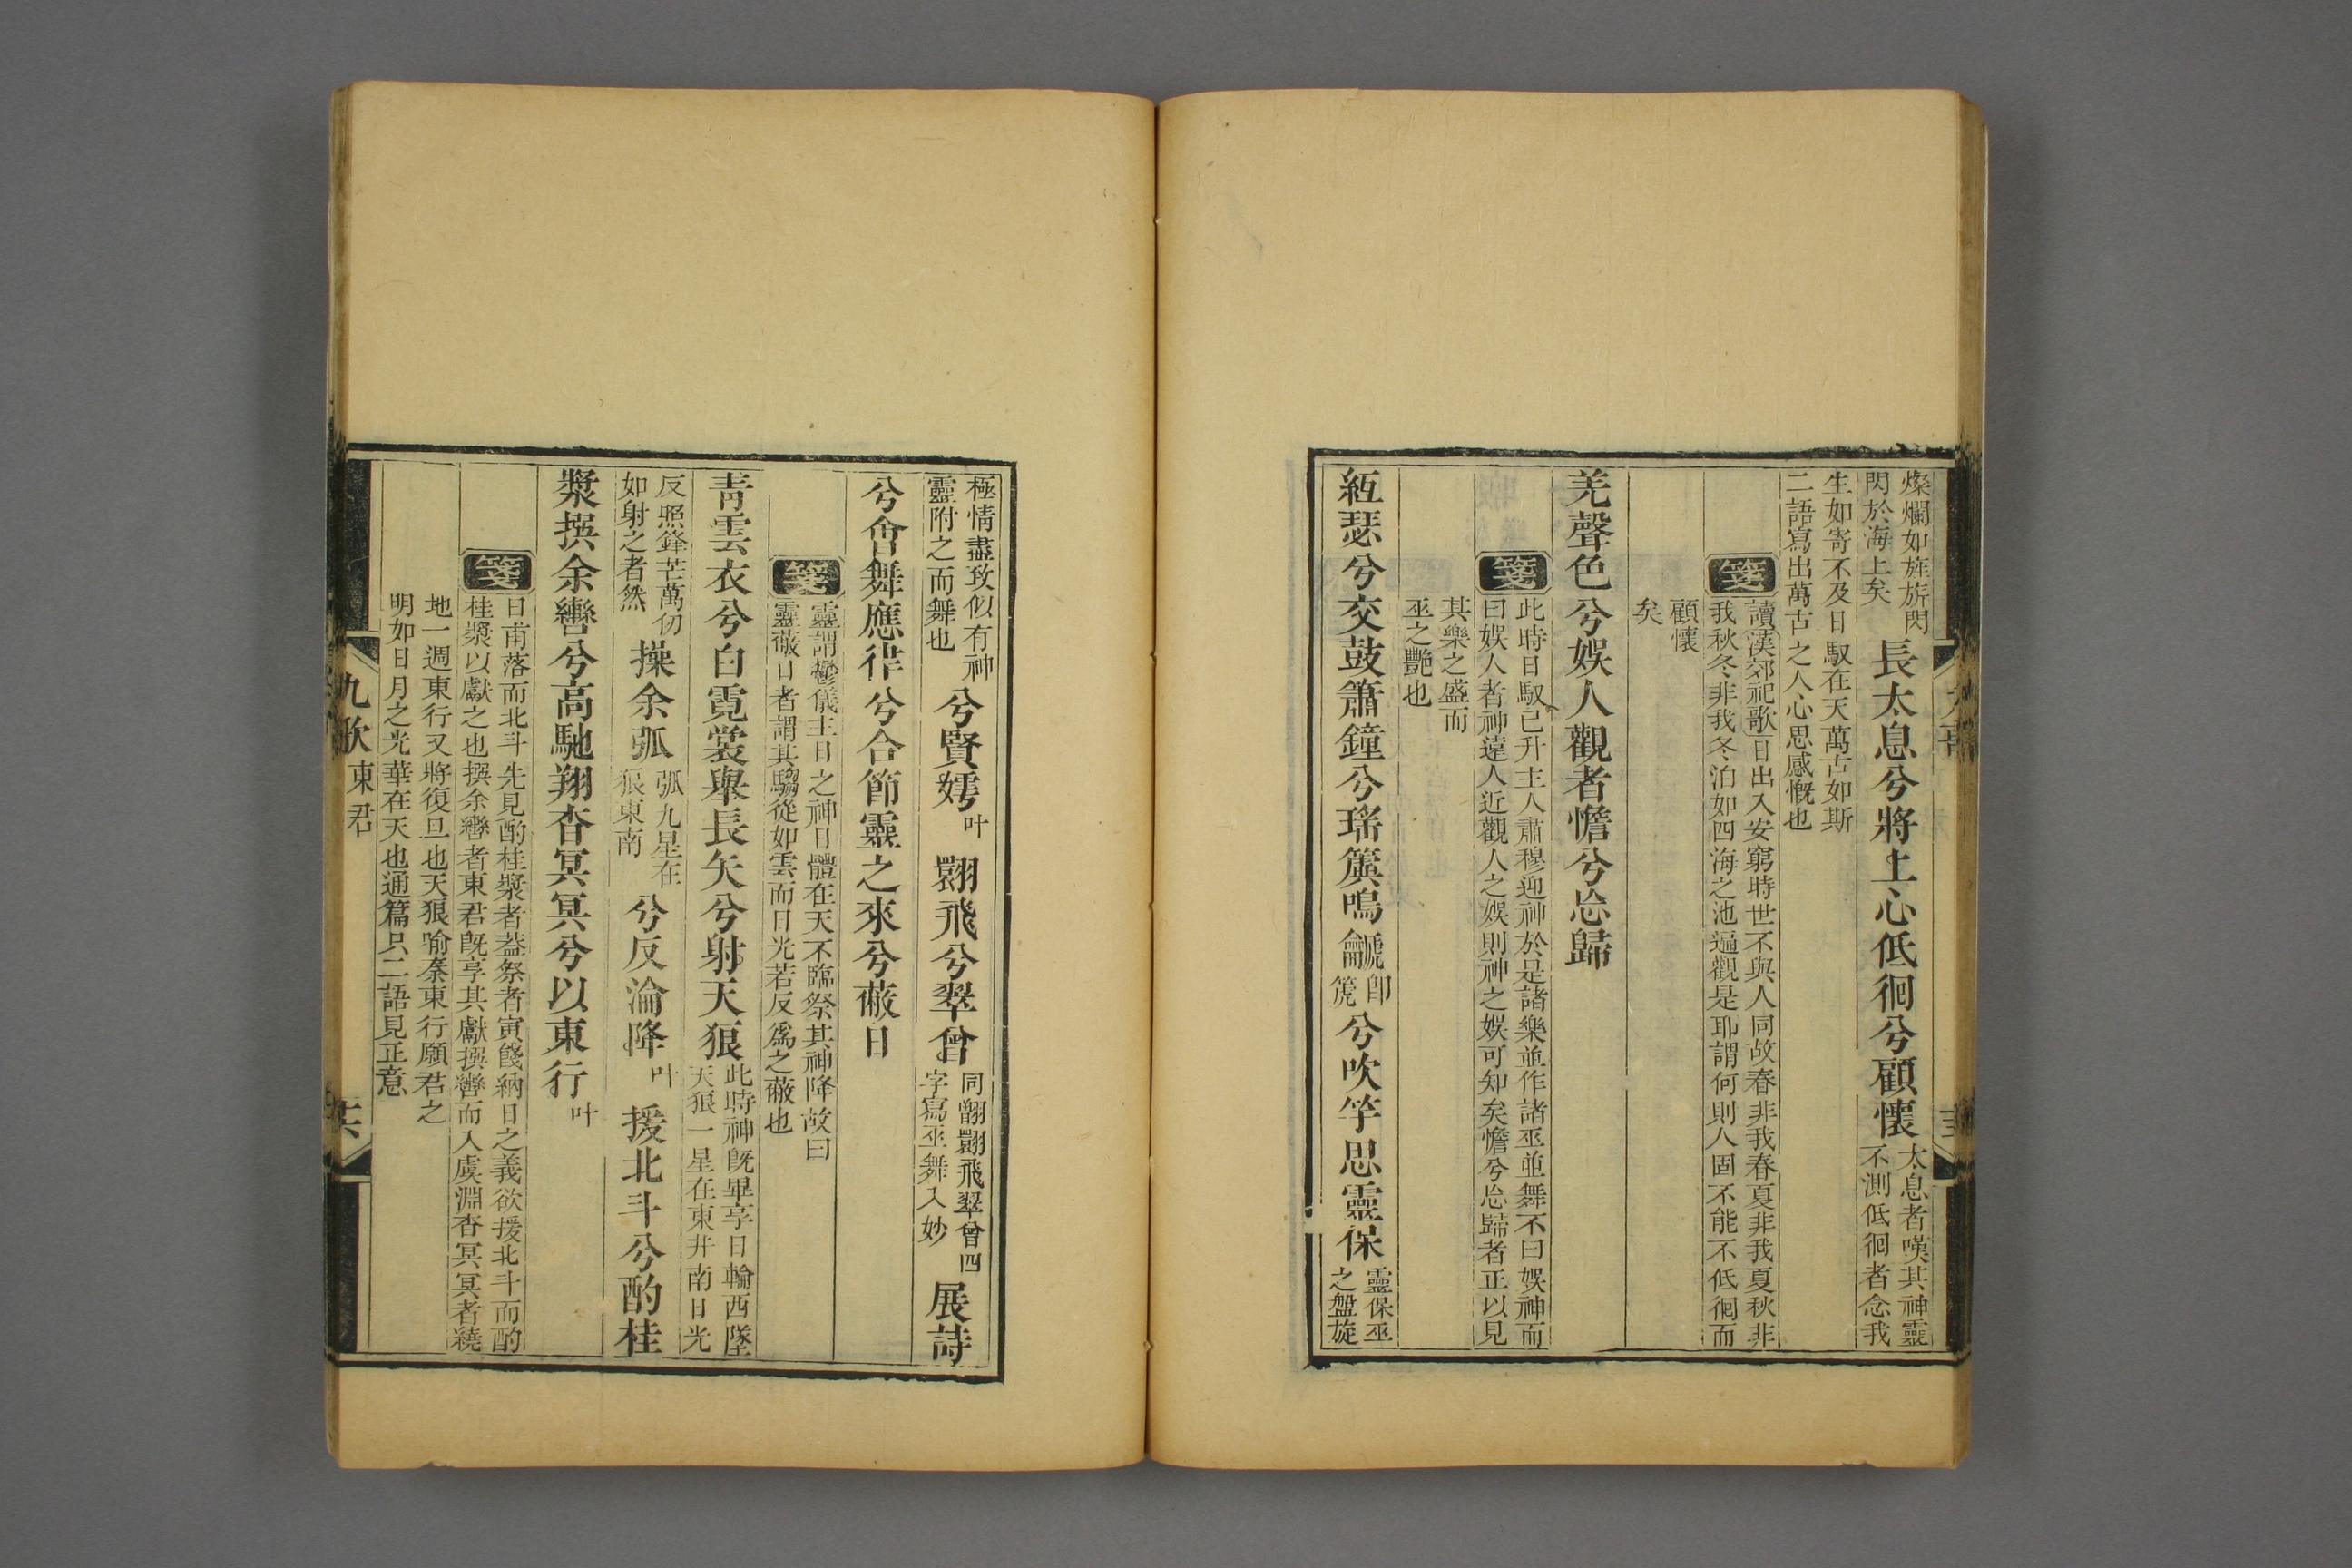 燦爛如旌旂閃
閃於海上矣
長太息兮將上心低徊兮顧懷
太息者嘆其神靈
不測低徊者念我
生如寄不及日馭在天萬古如斯
二語寫出萬古之人心思感慨也
箋
讀漢郊祀歌日出入安窮時世不與人同故春非我春夏非我夏秋非
我秋冬非我冬泊如四海之池遍觀是耶謂何則人固不能不低徊而
顧懷
矣
羌聲色兮娛人觀者憺兮忘歸
箋
此時日馭已升主人肅穆迎神於是諸樂並作諸巫並舞不曰娛神而
曰娛人者神遠人近觀人之娛則神之娛可知矣憺兮忘歸者正以見
其樂之盛而
巫之艷也
絚瑟兮交鼓簫鐘兮瑤簴鳴
卽
箎
兮吹竽思靈保
靈保巫
之盤旋
極情盡致似有神
靈附之而舞也
兮賢姱叶翾飛兮翠曾
同䎖翾飛翠曾四
字寫巫舞入妙
展詩
兮會舞應律兮合節靈之來兮蔽日
箋
靈謂鬱儀主日之神日體在天不臨祭其神降故曰
靈蔽日者謂其騶從如雲而日光若反爲之蔽也
靑雲衣兮白霓裳舉長矢兮射天狼
此時神旣畢享日輪西墜
天狼一星在東井南日光
反照鋒芒萬仞
如射之者然
操余弧
弧九星在
狼東南
兮反淪降叶援北斗兮酌桂
漿撰余轡兮高馳翔杳冥冥兮以東行叶
箋
日甫落而北斗先見酌桂漿者葢祭者寅餞納日之義欲援北斗而酌
桂漿以獻之也撰余轡者東君旣享其獻撰轡而入虞淵杳冥冥者繞
地一週東行又將復旦也天狼喻秦東行願君之
明如日月之光華在天也通篇只二語見正意
九歌
東君